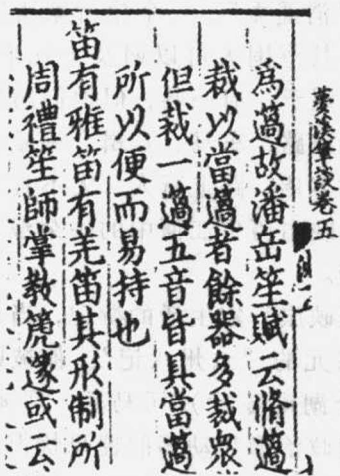 夢溪筆談卷五
為薖故潘岳笙賦云脩薖
裁以當薖者餘器多裁衆
但裁一薖五音皆具當薖
所以便而易持也
笛有雅笛有羌笛其形制所
周禮笙師掌教箎篴或云